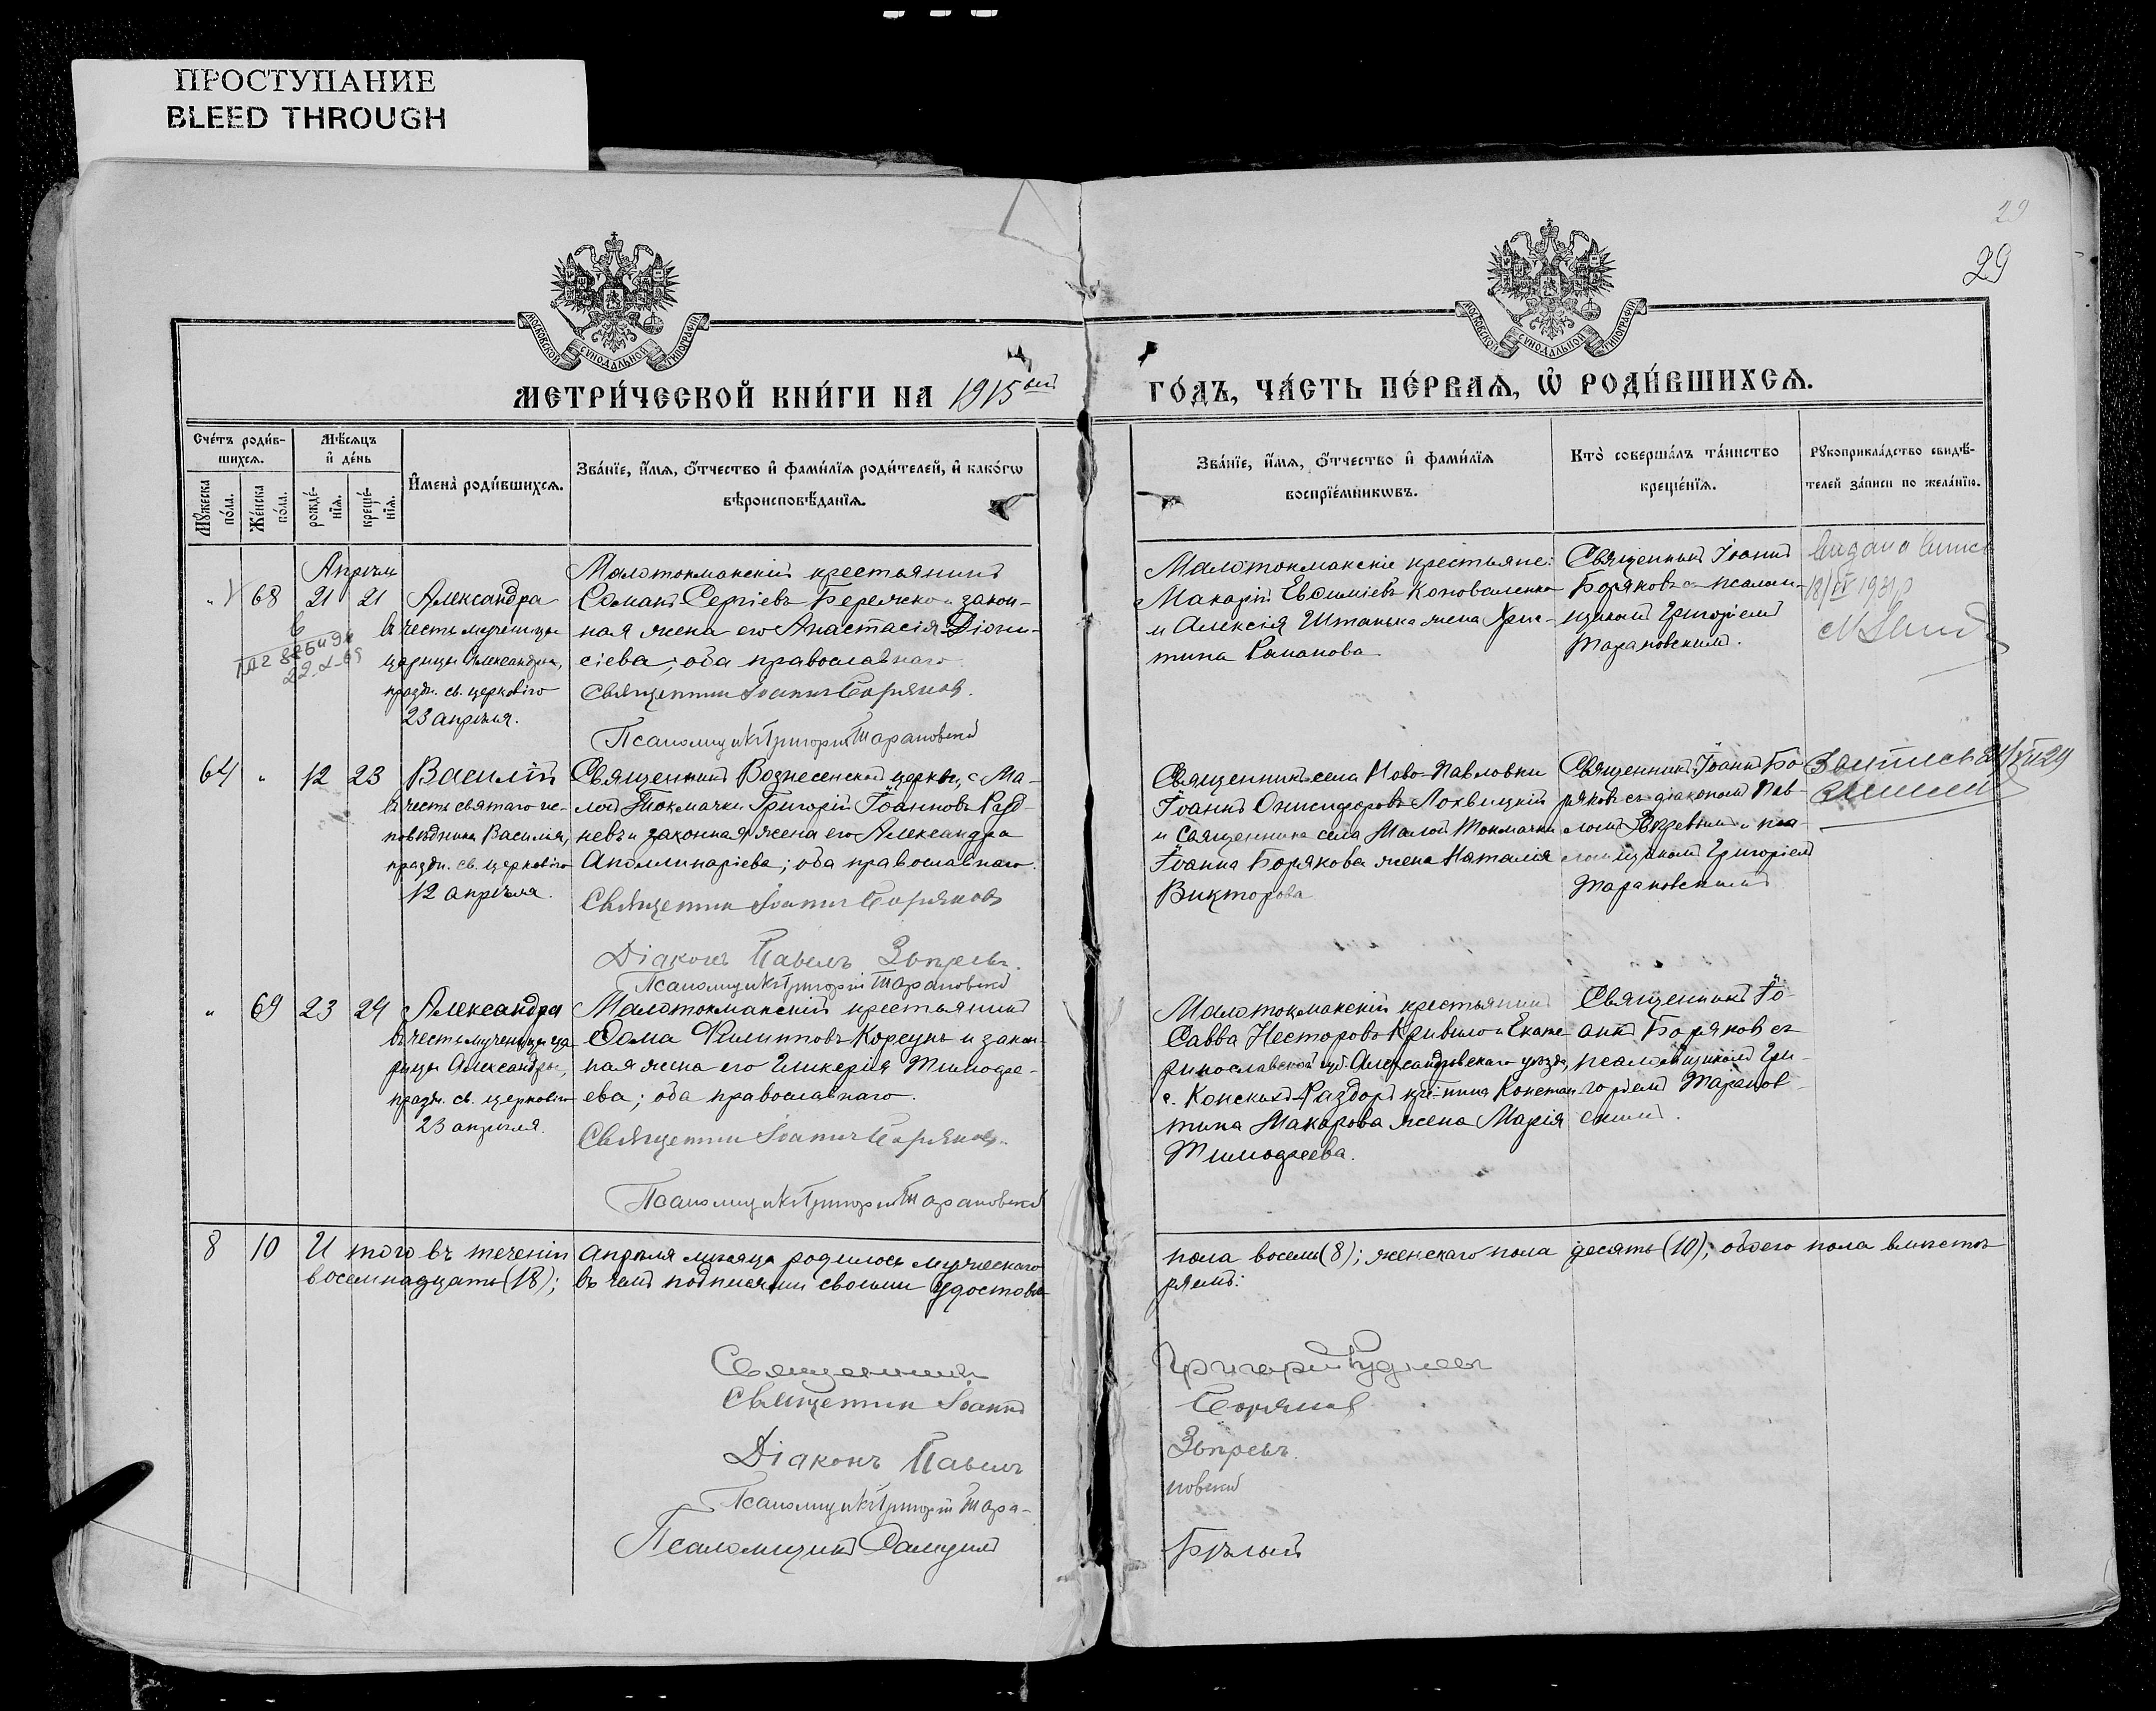 ПРОСТУПАНИЕ
BLEED THROUGH
29
29
МОСКОВСКОЙ СѴНОДАЛЬНОЙ ТИПОГРАФІИ
МОСКОВСКОЙ СѴНОДАЛЬНОЙ ТИПОГРАФІИ
МЕТРИ́ЧЕСКОЙ КНИ́ГИ НА 1915 ый
ГО́ДЪ, ЧА́СТЬ ПЕ́РВАѦ, Ѡ҆ РОДИ́ВШИХСѦ.
Сче́тъ роди́в-
шихсѧ.
Мѣ́сѧцъ
и҆ де́нь
Мꙋ́жеска
по́ла.
Же́нска
по́ла.
рожде́-
нїѧ.
креще́-
нїѧ.
И҆мена̀ роди́вшихсѧ.
Зва́нїе, и҆́мѧ, ѻ҆́тчество и҆ фами́лїѧ роди́телей, и҆ како́гѡ
вѣроисповѣ́данїѧ.
Зва́нїе, и҆́мѧ, ѻ҆́тчество и҆ фами́лїѧ
воспрїе́мникѡвъ.
Кто̀ соверша́лъ та́инство
креще́нїѧ.
Рꙋкоприкла́дство свидѣ́-
телей за́писи по жела́нїю.
Апрѣль
" 68 21 21 Александра
въ честь мученицы
царицы Александры,
праздн. св. церковію
23 апрѣля.
Малотокмакскій крестьянинъ
Романъ Сергіевъ и закон-
ная жена его Анастасія Діони-
сіева; оба православнаго.
Священникъ Іоаннъ Боряковъ.
Псаломщикъ Григорій Тарановскій
Малотокмакскіе крестьяне:
Макарій Евфиміевъ Коноваленко
и Алексія Штанька жена Хрис-
тина Романова.
Священникъ Іоаннъ
Боряковъ съ псалом-
щикомъ Григоріемъ
Тарановскимъ.
64 " 12 23 Василій
въ честь святаго ис-
повѣдника Василія,
праздн. св. церковію
12 апрѣля.
Священникъ Вознесенской церкви, с. Ма-
лой Токмачки Григорій Іоанновъ Руд-
невъ и законная жена его Александра
Аполлинаріева; оба православнаго.
Священникъ Іоаннъ Боряковъ
Діаконъ Павелъ Зоѳеевъ.
Псаломщикъ Григорій Тарановскій
Священникъ села Ново-Павловки
Іоаннъ Онисифоровъ Лохвицкій
и священника села Малой Токмачки
Іоанна Борякова жена Наталія
Викторова
Священникъ Іоаннъ Бо-
ряковъ съ діакономъ Пав-
ломъ и пса-
ломщикомъ Григоріемъ
Тарановскимъ
" 69 23 24 Александра
въ честь мученицы ца-
рицы Александры,
праздн. св. церковію
23 апрѣля.
Малотокмакскій крестьянинъ
Ѳома Филипповъ Корсунь и закон-
ная жена его Гликерія Тимоѳе-
ева; оба православнаго.
Священникъ Іоаннъ Боряковъ.
Псаломщикъ Григорій Тарановскій
Малотокмакскій крестьянинъ
Савва Несторовъ Кривило и Екате-
ринославской губ. Александровскаго уѣзда,
с. Конскихъ-Раздоръ кр-нина Констан-
тина Макарова жена Марія
Тимоѳеева.
Священникъ Іо-
аннъ Боряковъ съ
псаломщикомъ Гри-
горіемъ Таранов-
скимъ.
8 10 И того въ теченіи апрѣля мѣсяца родилось мужескаго
пола восемь (8); женскаго пола десять (10); обоего пола вмѣстѣ
восемнадцать (18); въ чемъ подписями своими удостовѣ-
ряемъ:
Священникъ Григорій Рудневъ
Священникъ Іоаннъ Боряковъ
Діаконъ Павелъ
Псаломщикъ Григорій Тара-
новскій
Псаломщикъ Бѣлый